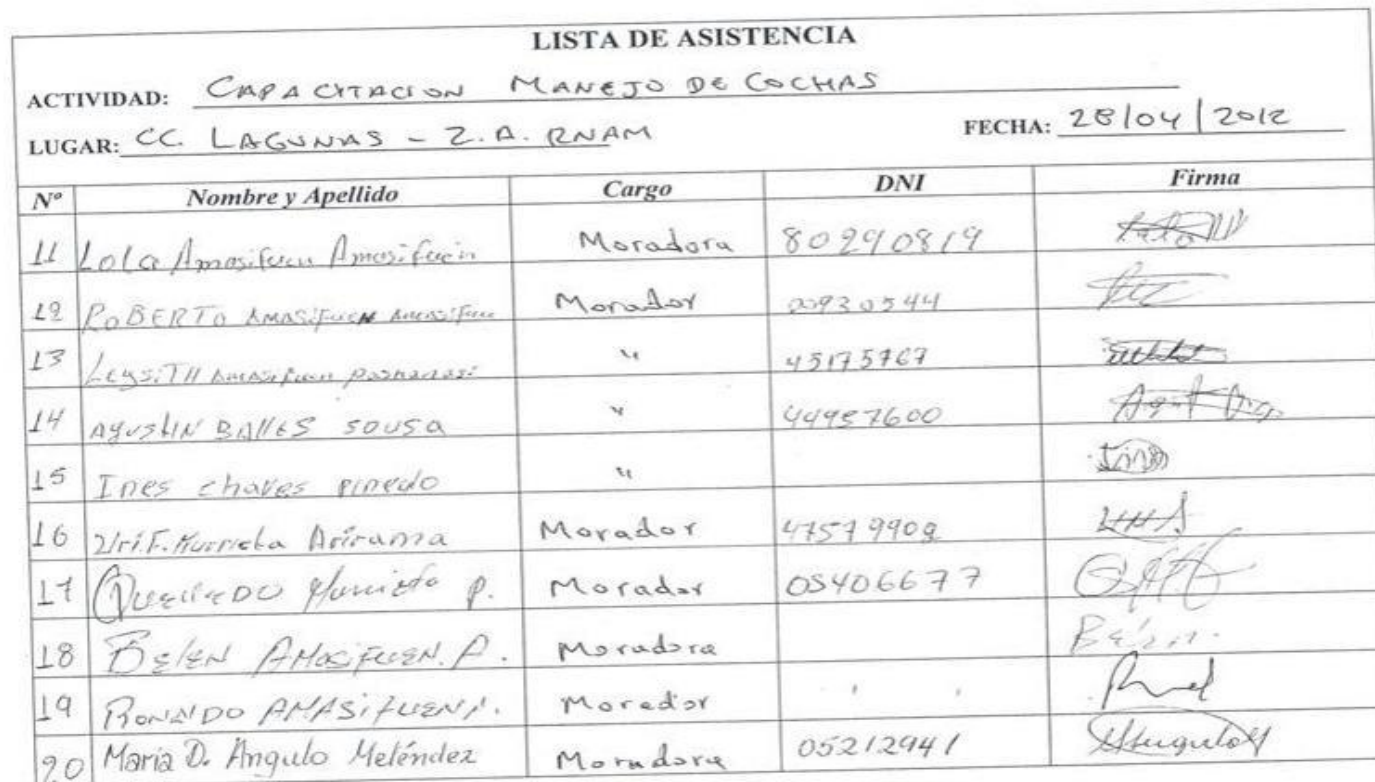 LISTA DE ASISTENCIA
ACTIVIDAD: CAPACITACION MANEJO DE COCHAS
LUGAR: CC. LAGUNAS - Z.A. RNAM FECHA: 28/04/2012
Nº Nombre y Apellido Cargo DNI Firma
11 Lola Amasifuen Amasifuein Moradora 80290819
12 ROBERTO AMASIFUEN Amasifuen Morador 00930544
13 Leysith Amasifuen " 45175767
14 AGUSTIN BALLES SOUSA " 44957600
15 Ines chaves pinedo " Ines
16 Uri.F. Murrieta Arirama Morador 47579902
17 Murrieta P. Morador 05406677
18 BELEN AMASIFUEN. A. Moradora Belen.
19 RONALDO AMASIFUEN Morador
20 María D. Angulo Meléndez Moradora 05212941